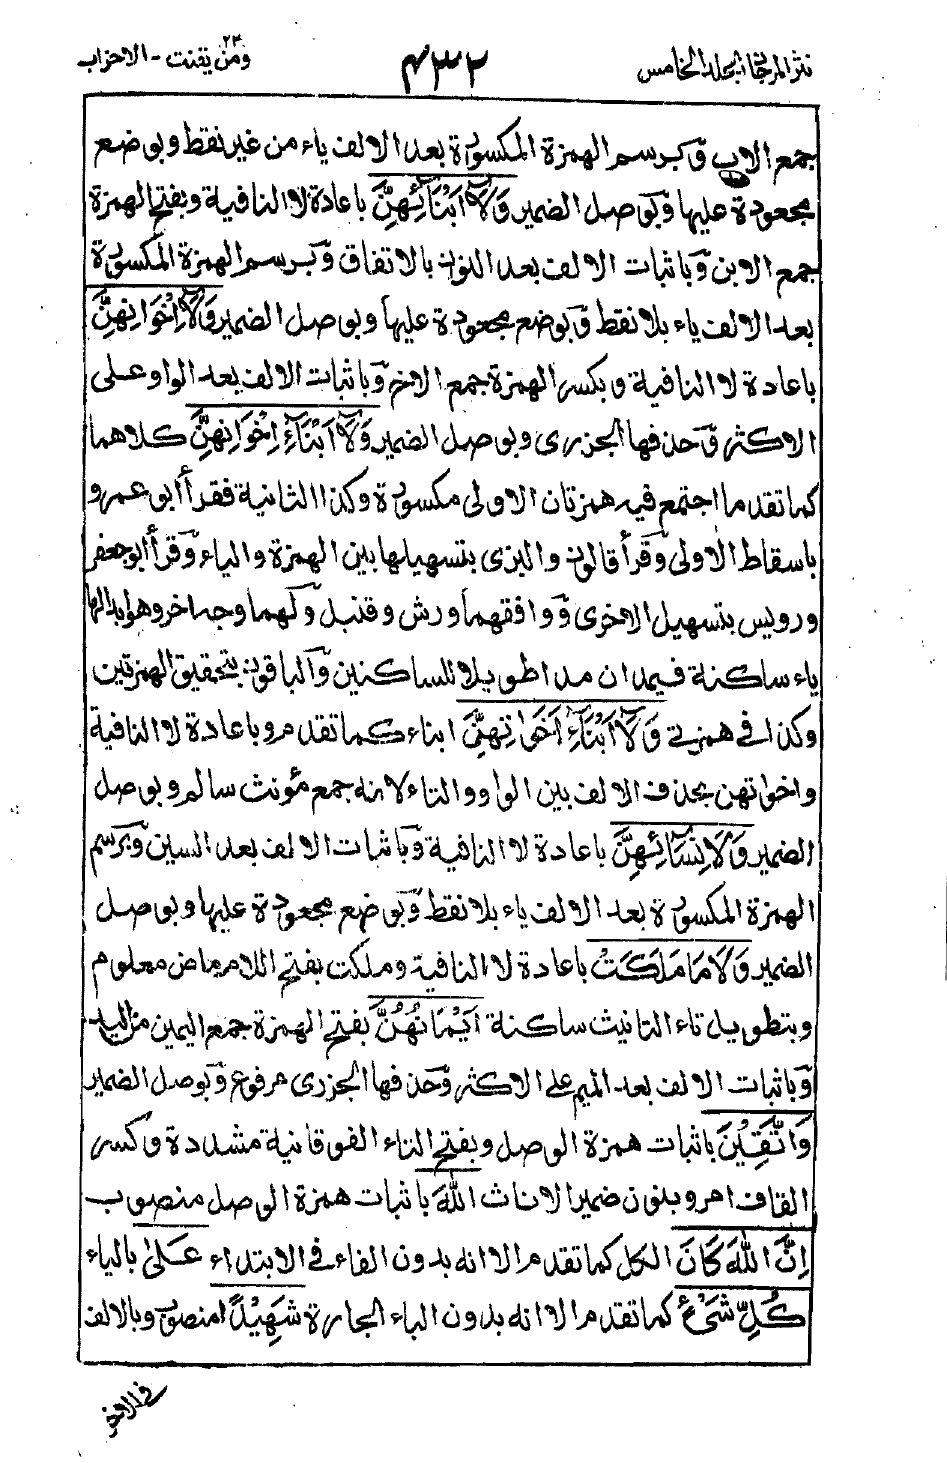 نثر المرجان المجلد الخامس
٤٣٢
ومن يقنت ٢٢ - الاحزاب
جمع الاب وبرسم الهمزة المكسورة بعد الالف ياء من غير نقط وبوضع
مجعودة عليها وبوصل الضمير وَلَآ اَبْنَآئِهِنَّ باعادة لا النافية وبفتح الهمزة
جمع الابن وباثبات الالف بعد النون بالاتفاق وبرسم الهمزة المكسورة
بعد الالف ياء بلا نقط وبوضع مجعودة عليها وبوصل الضمير وَلَآ اِخْوَانِهِنَّ
باعادة لا النافية وبكسر الهمزة جمع الاخ وباثبات الالف بعد الواو على
الاكثر وحذفها الجزرى وبوصل الضمير وَلَآ اَبْنَآءِ اِخْوَانِهِنَّ كلاهما
كما تقدم ما اجتمع فيه همزتان الاولى مكسورة وكذا الثانية فقرأ ابو عمرو
باسقاط الاولى وقرأ قالون والبزى بتسهيلها بين الهمزة والياء وقرأ ابو جعفر
ورويس بتسهيل الاخرى ووافقهما ورش وقنبل ولهما وجه اخر وهو ابدالها
ياء ساكنة فيمدان مدا طويلا للساكنين والباقون بتحقيق الهمزتين
وكذا في همزتي وَلَآ اَبْنَآءِ اَخَوٰتِهِنَّ ابناء كما تقدم وباعادة لا النافية
واخواتهن بحذف الالف بين الواو والتاء لانه جمع مؤنث سالم وبوصل
الضمير وَلَا نِسَآئِهِنَّ باعادة لا النافية وباثبات الالف بعد السين وبرسم
الهمزة المكسورة بعد الالف ياء بلا نقط وبوضع مجعودة عليها وبوصل
الضمير وَلَا مَا مَلَكَتْ باعادة لا النافية وملكت بفتح اللام ماض معلوم
وبتطويل تاء التانيث ساكنة اَيْمَانُهُنَّ بفتح الهمزة جمع اليمين من اليد
وباثبات الالف بعد الميم على الاكثر وحذفها الجزرى مرفوع وبوصل الضمير
وَاتَّقِيْنَ باثبات همزة الوصل وبفتح التاء الفوقانية مشددة وكسر
القاف امر وبنون ضمير الاناث اللّٰهَ باثبات همزة الوصل منصوب
اِنَّ اللّٰهَ كَانَ الكل كما تقدم الا انه بدون الفاء في الابتداء عَلٰى بالياء
كُلِّ شَىْءٍ كما تقدم الا انه بدون الباء الجارة شَهِيْدًا منصوب وبالالف
في الاخر